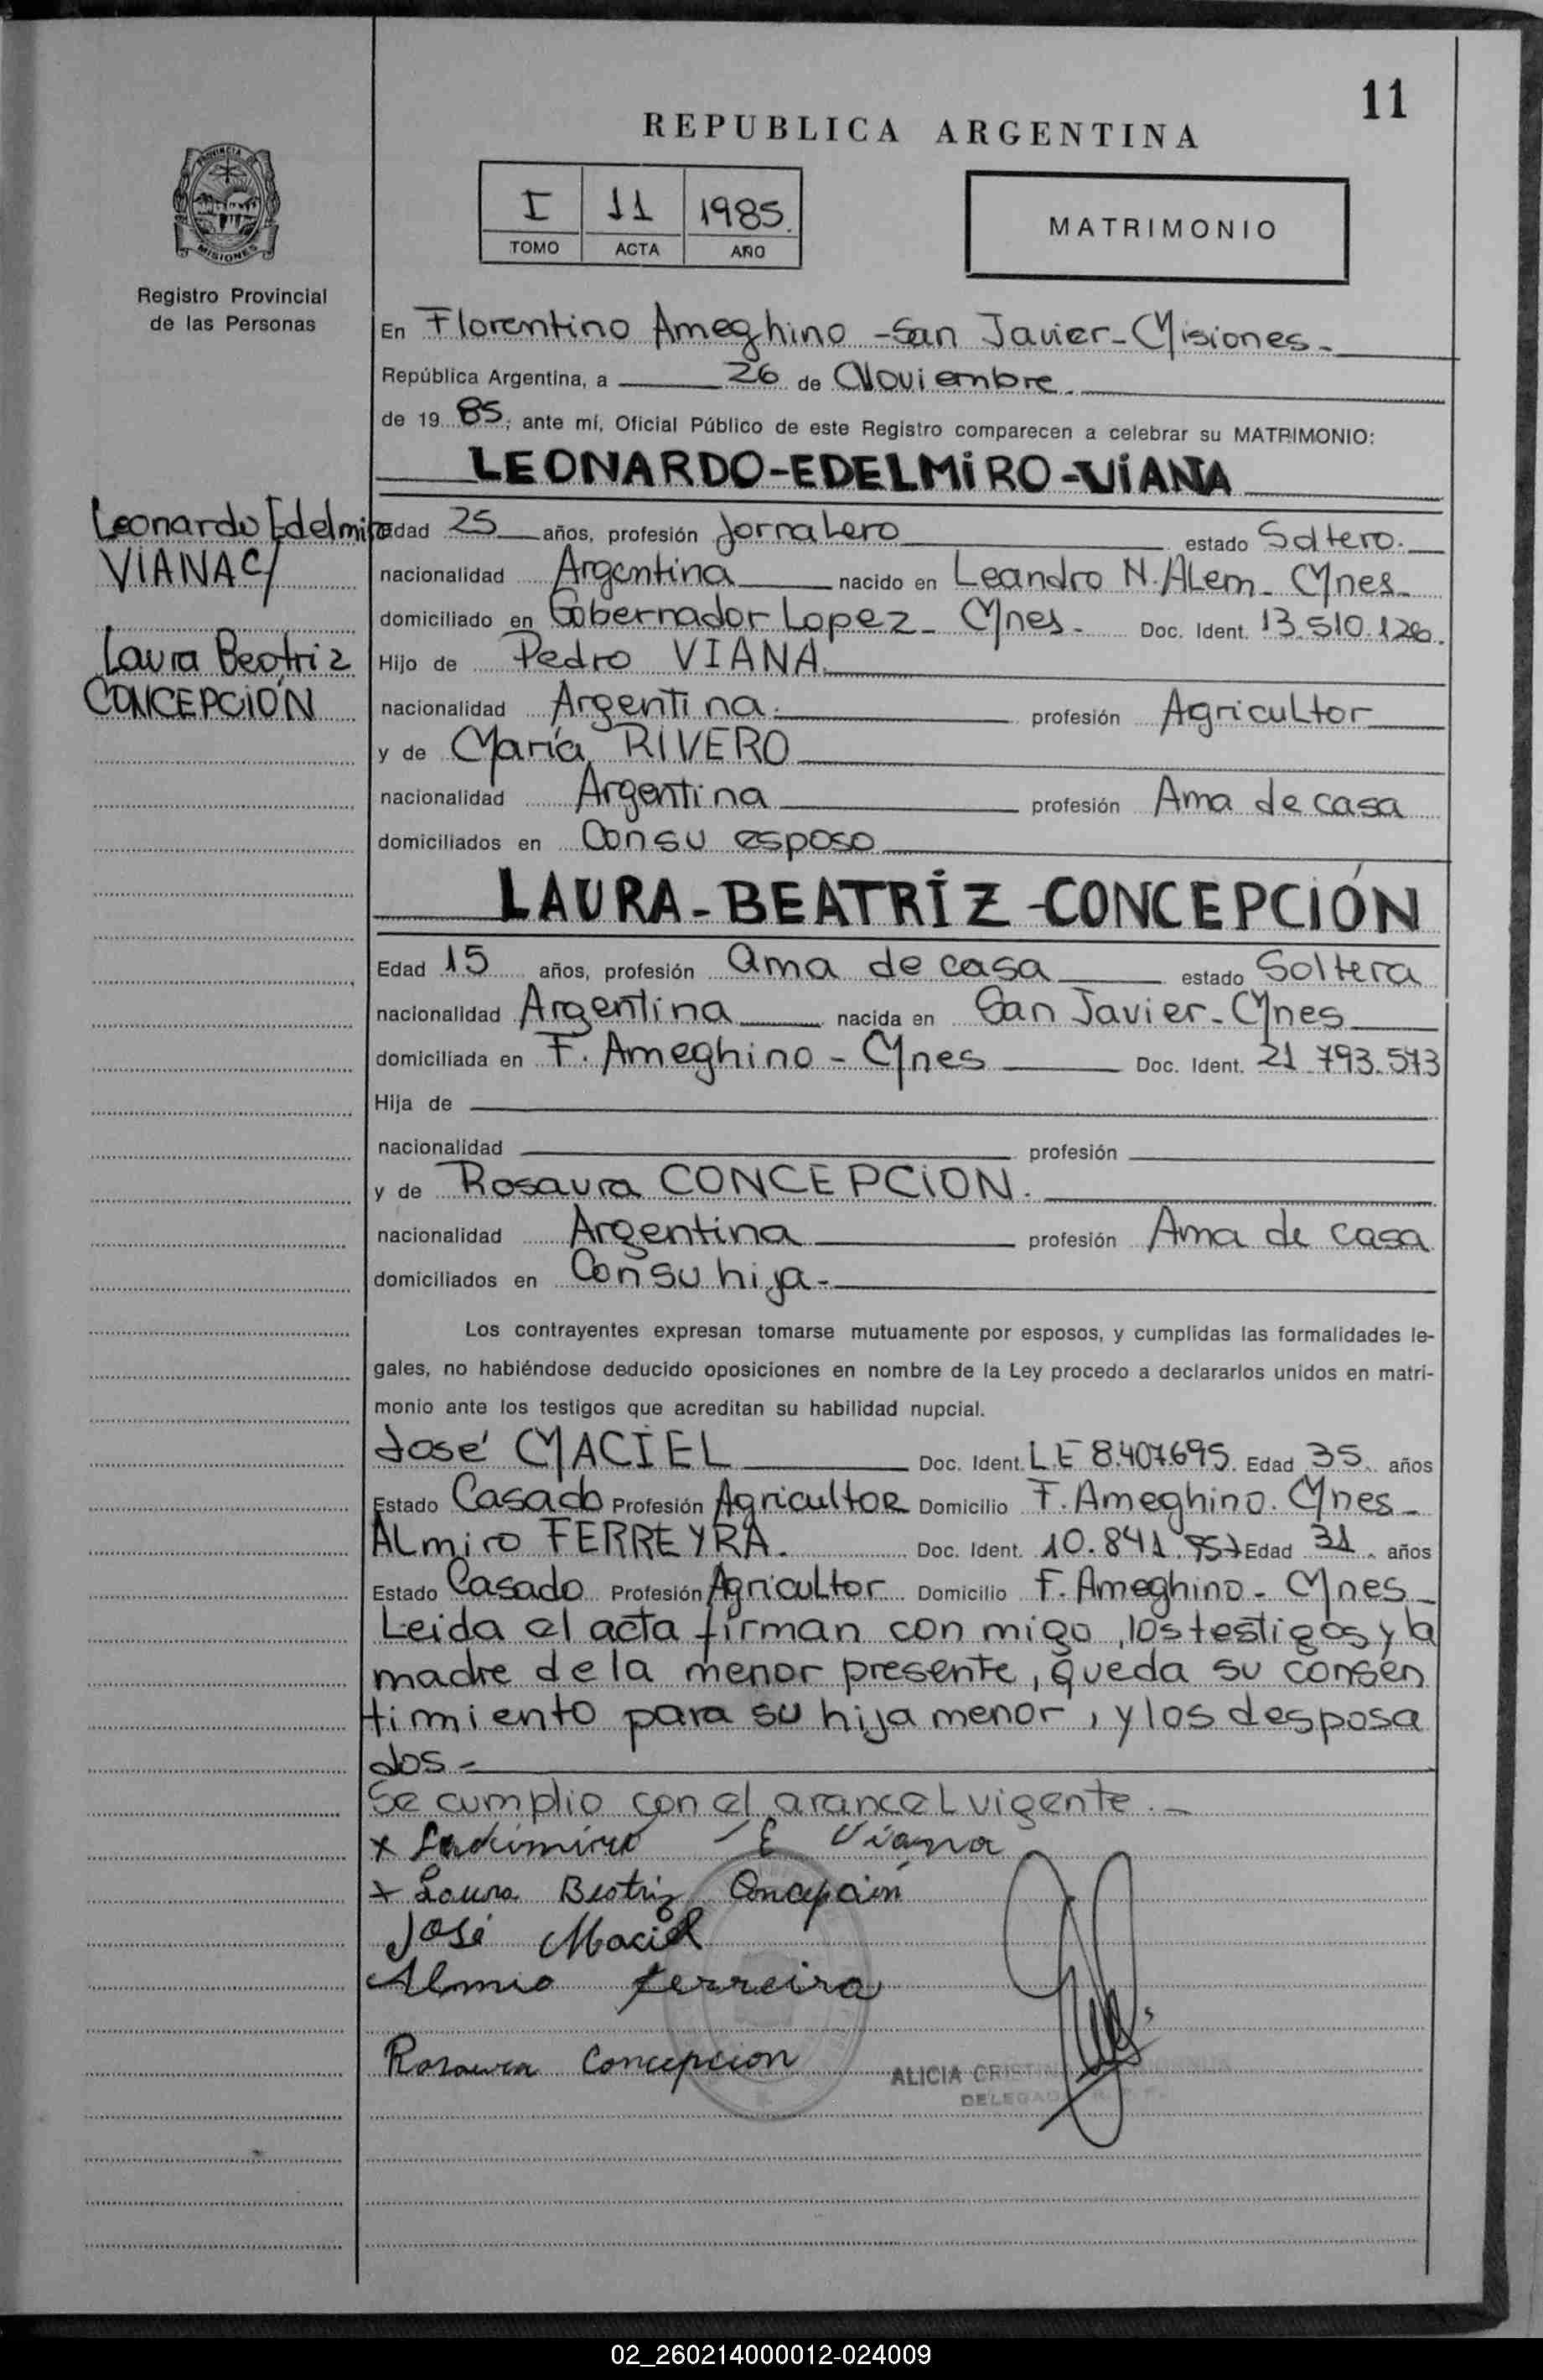 11
REPUBLICA ARGENTINA
I 11 1985.
TOMO ACTA AÑO
MATRIMONIO
PROVINCIA DE
MISIONES
Registro Provincial
de las Personas
En Florentino Ameghino -San Javier-Misiones-
República Argentina, a 26 de Noviembre.
de 19 85, ante mí, Oficial Público de este Registro comparecen a celebrar su MATRIMONIO:
LEONARDO-EDELMiRO-ViANA
Leonardo Edelmiro
VIANA C/
Laura Beatriz
CONCEPCIÓN
Edad 25 años, profesión Jornalero estado Soltero.
nacionalidad Argentina nacido en Leandro N. ALem- Mnes-
domiciliado en Gobernador Lopez- Mnes- Doc. Ident. 13.510.126.
Hijo de Pedro VIANA.
nacionalidad Argentina. profesión Agricultor
y de María RIVERO
nacionalidad Argentina profesión Ama de casa
domiciliados en Con su esposo
LAURA-BEATRÍZ-CONCEPCIÓN
Edad 15 años, profesión ama de casa estado Soltera
nacionalidad Argentina nacida en San Javier-Mnes
domiciliada en F. Ameghino - Mnes Doc. Ident. 21.793.573
Hija de
nacionalidad profesión
y de Rosaura CONCEPCION.
nacionalidad Argentina profesión Ama de casa
domiciliados en Con su hija-
Los contrayentes expresan tomarse mutuamente por esposos, y cumplidas las formalidades le-
gales, no habiéndose deducido oposiciones en nombre de la Ley procedo a declararlos unidos en matri-
monio ante los testigos que acreditan su habilidad nupcial.
José MACIEL Doc. Ident. L.E 8.407.695. Edad 35 años
Estado Casado Profesión Agricultor Domicilio F. Ameghino. Mnes-
ALmiro FERREYRA. Doc. Ident. 10.841.957 Edad 31. años
Estado Casado Profesión Agricultor Domicilio F. Ameghino- Mnes-
Leida el acta firman con migo, los testigos y la
madre de la menor presente, queda su consen
timiento para su hija menor, y los desposa
dos-
Se cumplio con el arancel vigente.-
x E Viana
x Laura Beatriz Concepción
José Maciel
Almio ferreira
Rosaura Concepcion
ALICIA